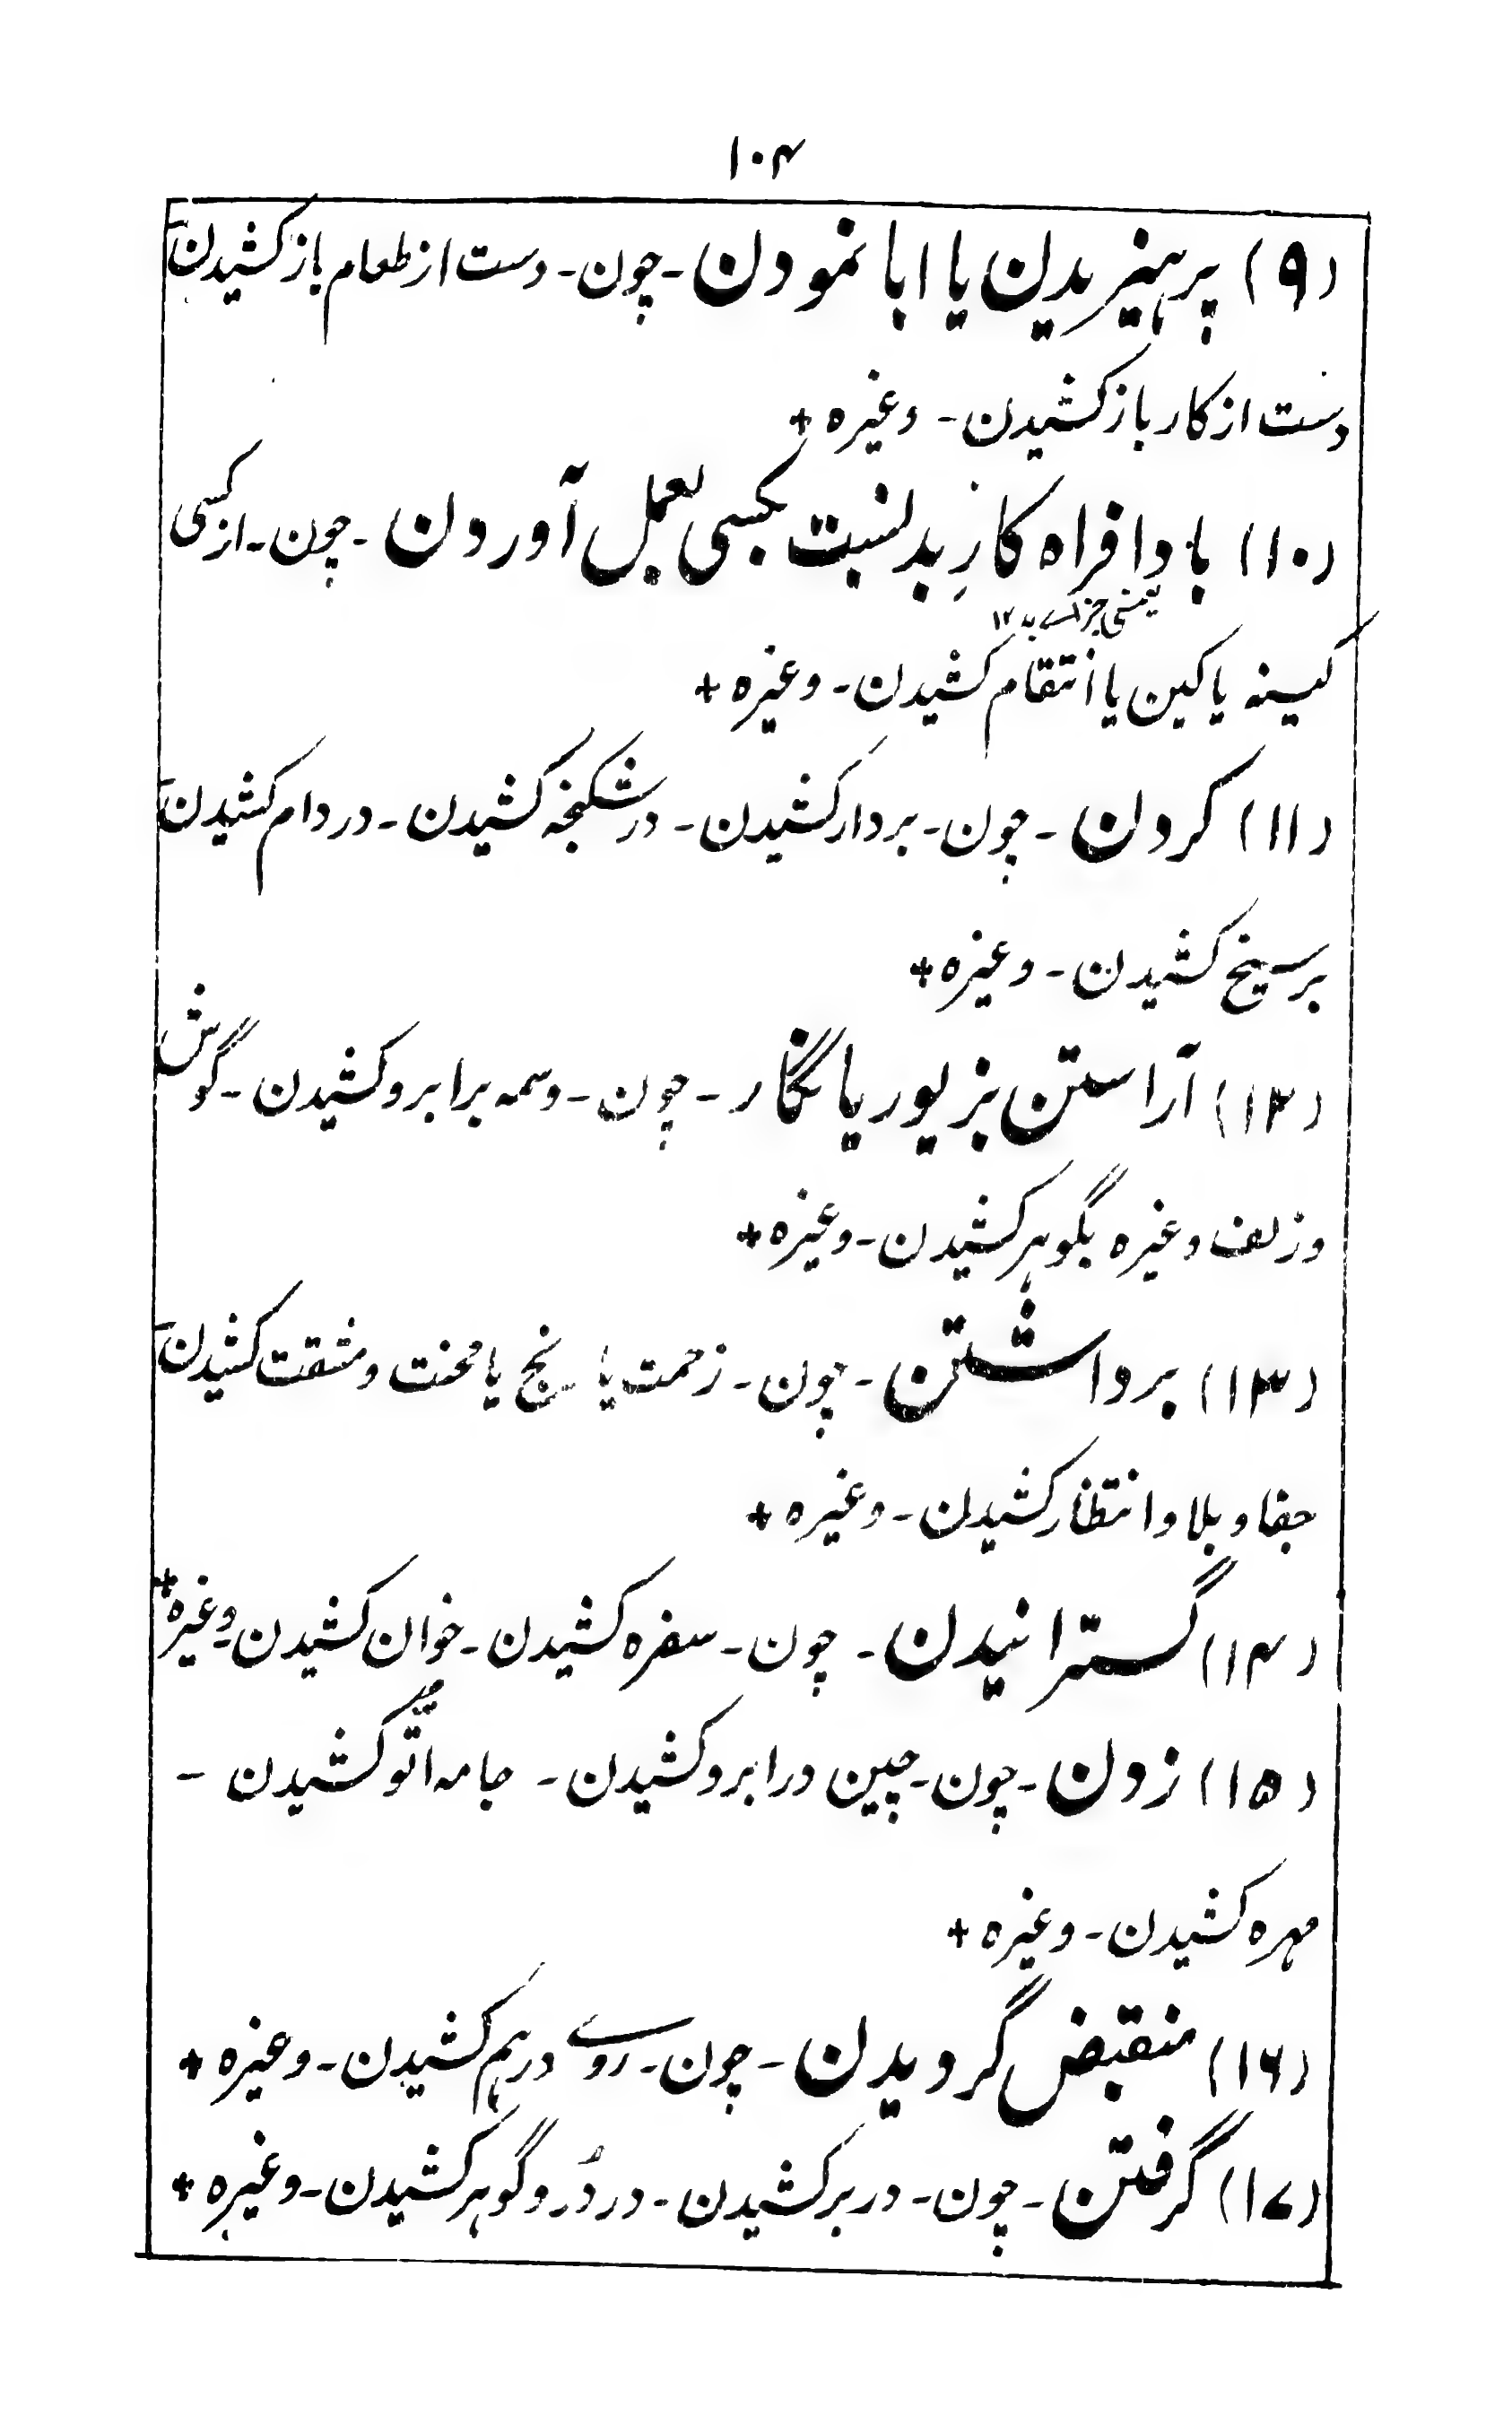 ۱۰۴
(۹) پرہیزیدن یا ابا نمودن - چون - دست از طعام باز کشیدن -
دست از کار باز کشیدن - وغیره +
(۱۰) بادافراه کارِ بد نسبت بکسی بعمل آوردن - چون - از کسی
یعنی جزاے بد ۱۲
کینه یا کین یا انتقام کشیدن - وغیره +
(۱۱) کردن - چون - بردار کشیدن - در شکنجه کشیدن - در دام کشیدن -
بر سیخ کشیدن - وغیره +
(۱۲) آراستن بزیور یا نگار - چون - وسمه بر ابرو کشیدن - گوش
و زلف وغیره بگوہر کشیدن - وغیره +
(۱۳) برداشتن - چون - زحمت یا رنج یا محنت و مشقت کشیدن -
جفا و بلا و انتظار کشیدن - وغیره +
(۱۴) گسترانیدن - چون - سفره کشیدن - خوان کشیدن - وغیره +
(۱۵) زدن - چون - چین در ابرو کشیدن - جامه اتّو کشیدن -
مهره کشیدن - وغیره +
(۱۶) منقبض گردیدن - چون - روے درہم کشیدن - وغیره +
(۱۷) گرفتن - چون - در بر کشیدن - در دُر و گوہر کشیدن - وغیره +